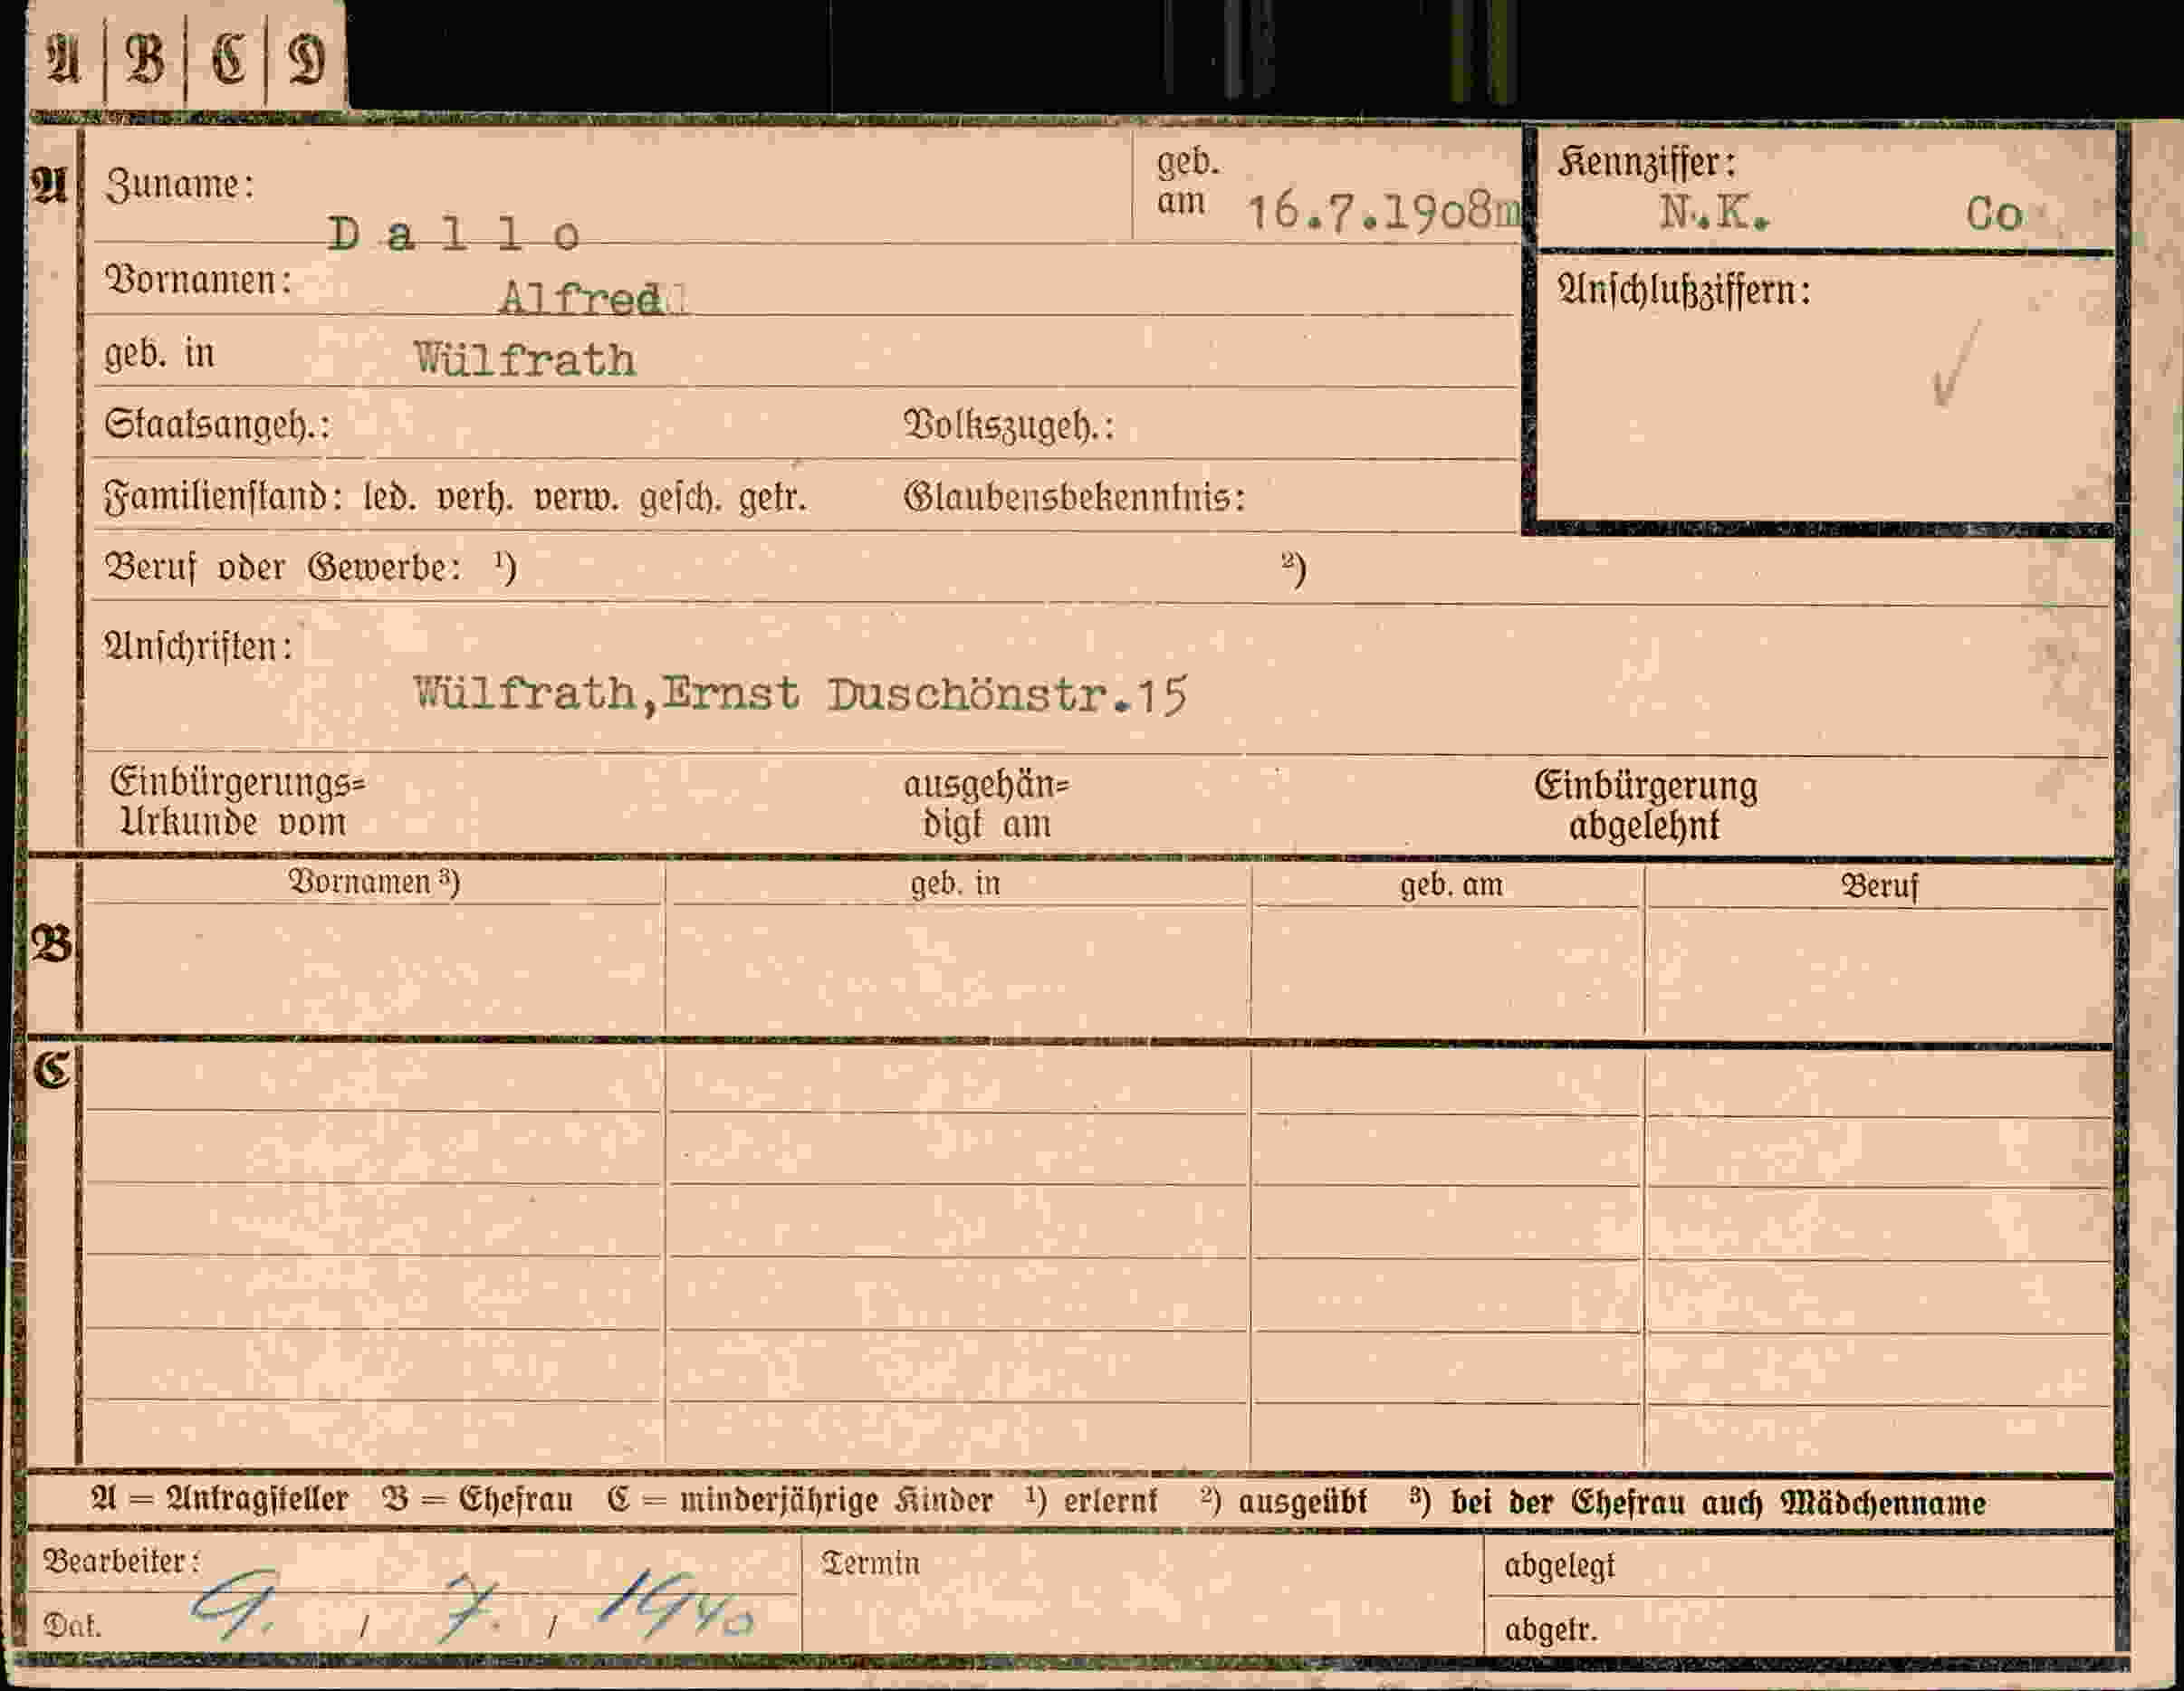 A | B | C | D
A
Zuname:
D a l l o
geb.
am 16.7.19o8m
Kennziffer:
N.K. Co
Vornamen: Alfred
Anschlußziffern:
geb. in Wülfrath
Staatsangeh.: Volkszugeh.:
Familienstand: led. verh. verw. gesch. getr. Glaubensbekenntnis:
Beruf oder Gewerbe: ¹) ²)
Anschriften:
Wülfrath,Ernst Duschönstr.15
Einbürgerungs=
Urkunde vom
ausgehän=
digt am
Einbürgerung
abgelehnt
B
Vornamen ³) geb. in geb. am Beruf
C
A = Antragsteller B = Ehefrau C = minderjährige Kinder ¹) erlernt ²) ausgeübt ³) bei der Ehefrau auch Mädchenname
Bearbeiter:
Dat. 9. / 7. / 1940
Termin
abgelegt
abgetr.